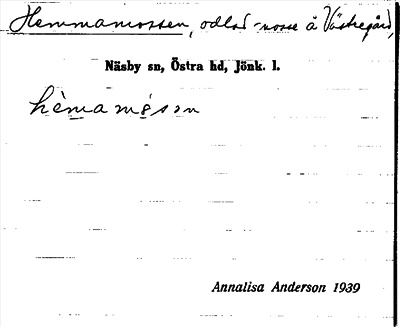 Hemmamossen, odlad mosse å Västregård,
Näsby sn, Östra hd, Jönk. l.
hèmamósən
Annalisa Anderson 1939